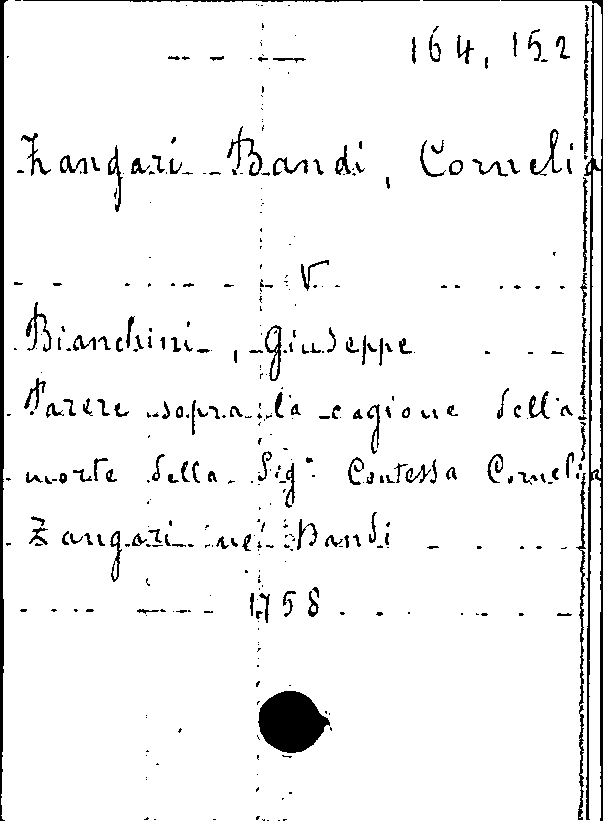 164, 152
Zangari Bandi, Cornelia
V.
Bianchini, Giuseppe
Parere sopra la cagione della
morte della Sigª Contessa Cornelia
Zangari ne' Bandi
1758